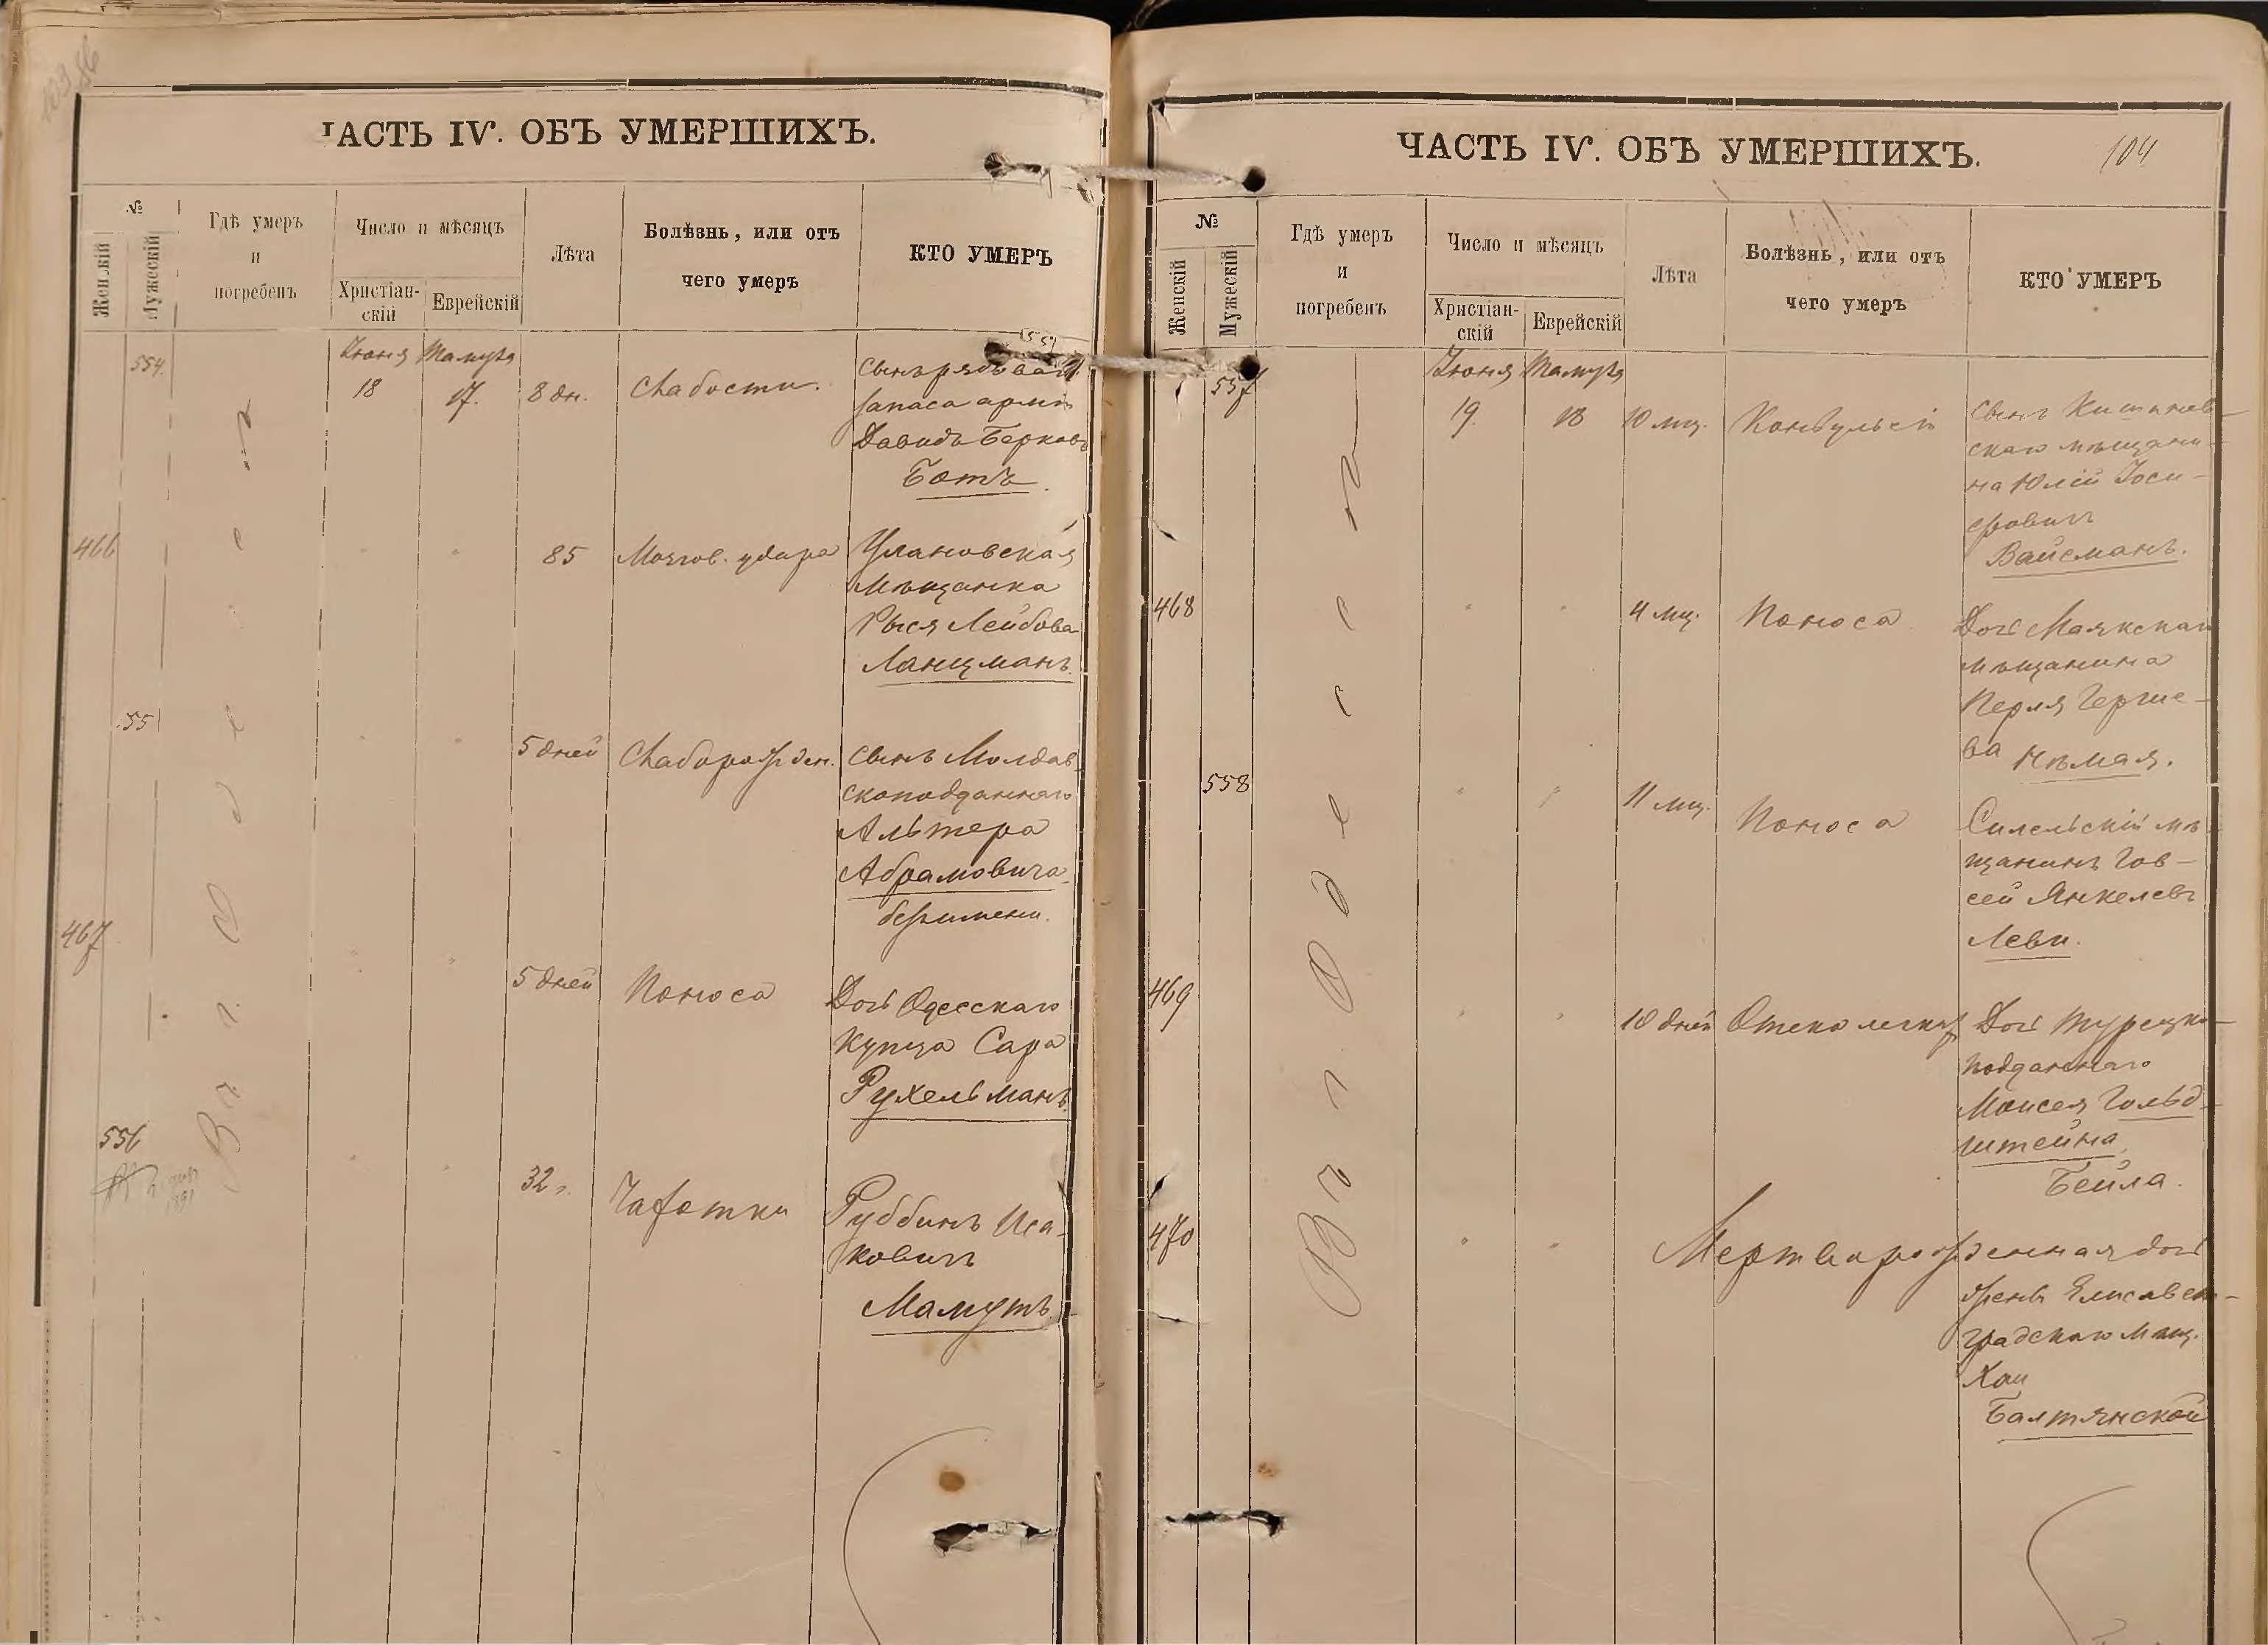 ЧАСТЬ IV. ОБЪ УМЕРШИХЪ.
№
Женскій
Мужескій
Гдѣ умеръ
и
погребенъ
Число и мѣсяцъ
Христіан-
скій
Еврейскій
Лѣта
Болѣзнь, или отъ
чего умеръ
КТО УМЕРЪ
Въ Одессѣ
554.
Іюня Тамуза
18 17. 8 дн. Слабости. сынъ рядоваго
запаса арміи
Давидъ Берковъ
Ботъ.
466 " " 85 Мозгов. удара Улановская
мѣщанка
Рыся Лейбова
Ланцманъ.
55
" " 5 дней Слаборожден. сынъ Молдав-
скоподданнаго
Альтера
Абрамовича
безъимени.
467
" " 5 дней Поноса Дочь Одесскаго
купца Сара
Рухельманъ.
556
" " 32 г. Чахотки Руббинъ Иса-
ковичъ
Мамутъ
ЧАСТЬ IV. ОБЪ УМЕРШИХЪ. 104
№
Женскій
Мужескій
Гдѣ умеръ
и
погребенъ
Число и мѣсяцъ
Христіан-
скій
Еврейскій
Лѣта
Болѣзнь, или отъ
чего умеръ
КТО УМЕРЪ
Въ Одессѣ
557
Іюня Тамуза
19. 18 10 мц. Конвульсіи сынъ Кишинев-
скаго мѣщани-
на Юлій Іоси-
фовичъ
Вайсманъ.
468 " " 4 мц. Поноса Дочь Маякскаго
мѣщанина
Перля Герше-
ва Нѣмая.
558 " " 11 мц. Поноса мѣ-
щанинъ Гов-
сей Янкелевъ
Леви.
469 " " 10 дней Отека легких Дочь Турецко-
подданнаго
Моисея Гольд-
штейна
Бейла.
470 " " Мертворожденная дочь
жены Елисавет-
градскаго мѣщ.
Хаи
Балтянской